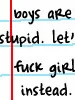 boys are
stupid. let'
fuck girl
instead.